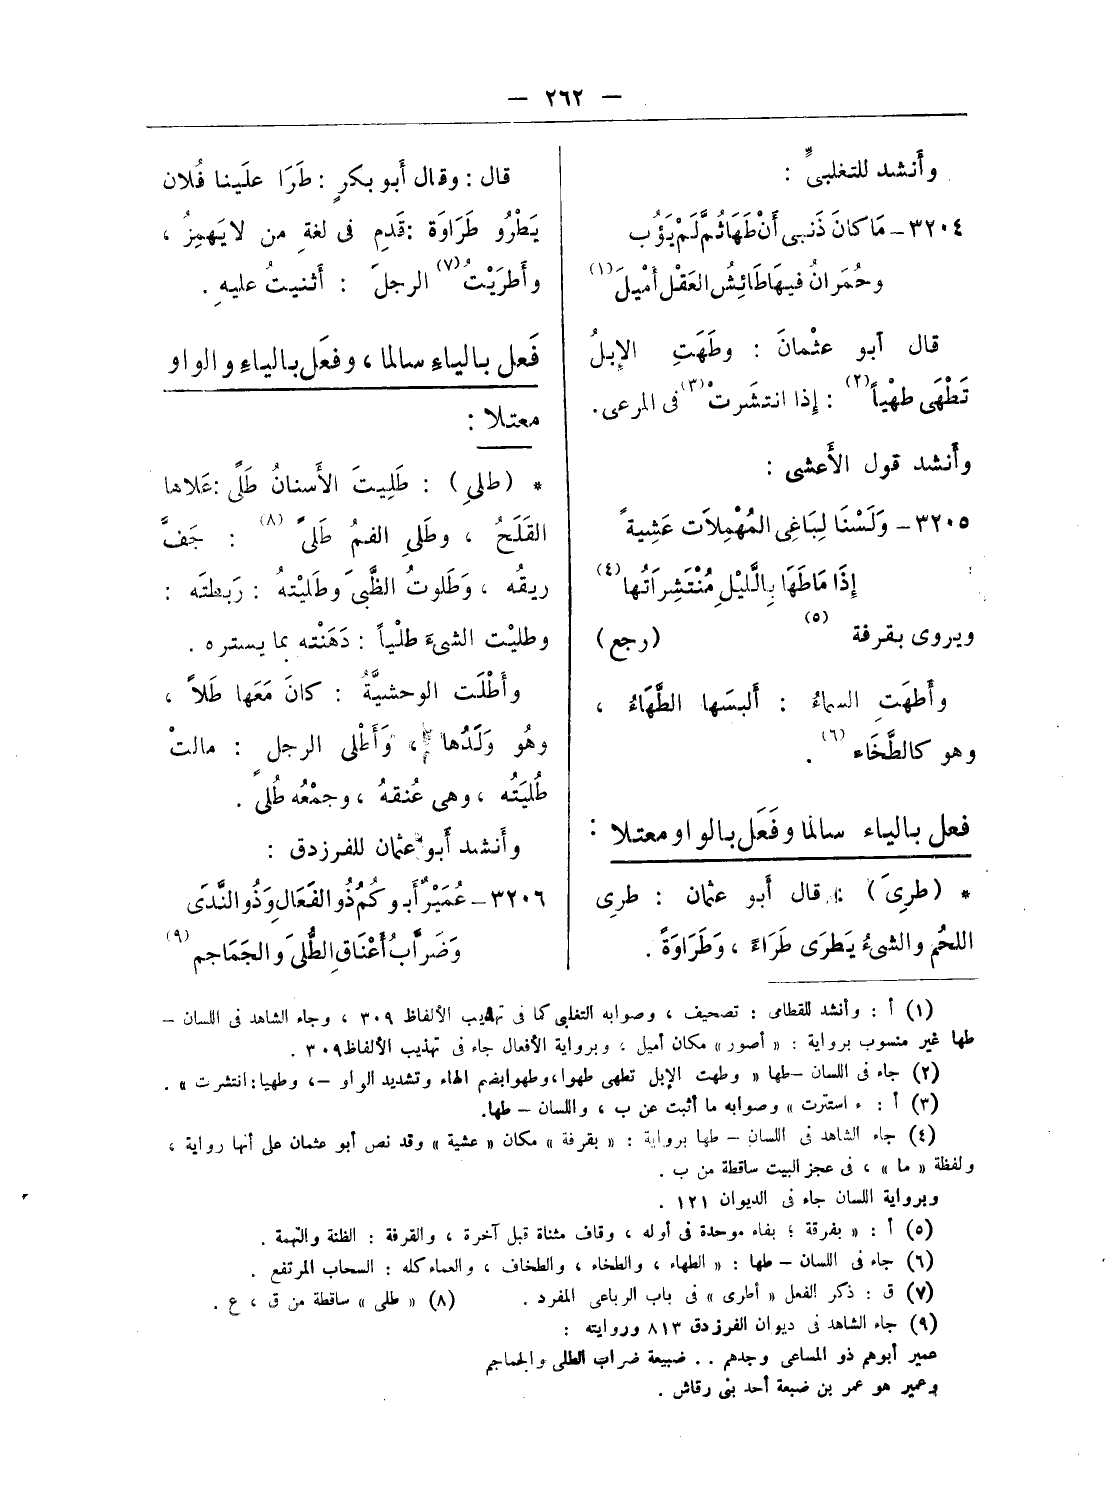 — ٢٦٢ —
وأنشد للتغلبىِّ :
٣٢٠٤ – مَا كانَ ذَنبى أنْ طَهَا ثُمَّ لَمْ يَؤُب
وحُمَرانُ فيهَا طَائِشُ العَقْل أمْيلَ (١)
قال أبو عثْمانَ : وطَهَتِ الإبلُ
تَطْهَى طهْياً (٢) : إذا انتشَرتْ (٣) فى المرعى.
وأَنشد قول الأَعشى :
٣٢٠٥ – وَلَسْنَا لِبَاغِى المُهْمِلاَت عَشِيةً
إذَا مَا طَهَا بِالَّليْلِ مُنْتَشِرَاتُها (٤)
ويروى بقرفة (٥) (رجع)
وأَطهَتِ السماءُ : أَلبسَها الطَّهَاءُ ،
وهو كالطَّخَاء (٦) .
فعل بالياء سالمًا وفَعَل بالواو معتلا :
* (طرِىَ) : قال أبو عثمان : طرى
اللحُم والشىءُ يَطرَى طَرَاءً ، وطَرَاوَةً .
قال : وقال أَبو بكرٍ : طَرَا علَينا فُلان
يَطْرُو طَرَاوَة : قَدمِ فى لغة من لا يَهمِزُ ،
وأطرَيْتُ (٧) الرجلَ : أَثنيتُ عليهِ .
فَعل بالياءِ سالما ، وفعَل بالياءِ والواو
معتلا :
* (طلى) : طَلِيتَ الأَسنانُ طَلًى : عَلاها
القَلَحُ ، وطَلىِ الفمُ طَلىً (٨) : جَفَّ
ريقُه ، وَطَلوتُ الظَّبىَ وطَليْتهُ : رَبطتَه :
وطليْت الشىءَ طلْياً : دَهَنْته بما يستره .
وأَطْلَت الوحشيَّةُ : كانَ مَعَها طَلاً ،
وهُو وَلَدُها ، وَأَطْلى الرجل : مالتْ
طُليَتُه ، وهى عُنقهُ ، وجمْعُه طُلىً .
وأَنشد أَبو عثمان للفرزدق :
٣٢٠٦ – عُمَيْرٌ أَبوكُمُ ذُو الفَعَالِ وَذُو النَّدَى
وَضَرَّابُ أَعْنَاقِ الطُّلىَ والجَمَاجم (٩)
(١) أ : وأنشد للقطامى : تصحيف ، وصوابه التغلبى كما فى تهذيب الألفاظ ٣٠٩ ، وجاء الشاهد فى اللسان –
طها غير منسوب برواية : « أصور » مكان أميل ، وبرواية الأفعال جاء فى تهذيب الألفاظ ٣٠٩ .
(٢) جاء فى اللسان – طها « وطهت الإبل تطهى طهوا، وطهوا بضم الهاء وتشديد الواو –، وطهيا : انتشرت » .
(٣) أ : « استترت » وصوابه ما أثبت عن ب ، واللسان – طها.
(٤) جاء الشاهد فى اللسان – طها برواية : « بقرفة » مكان « عشية » وقد نص أبو عثمان على أنها رواية ،
ولفظة « ما » ، فى عجز البيت ساقطة من ب .
وبرواية اللسان جاء فى الديوان ١٢١ .
(٥) أ : « بفرقة ؛ بفاء موحدة فى أوله ، وقاف مثناة قبل آخرة ، والقرفة : الظنة والتهمة .
(٦) جاء فى اللسان – طها : « الطهاء ، والطخاء ، والطخاف ، والعماء كله : السحاب المرتفع .
(٧) ق : ذكر الفعل « أطرى » فى باب الرباعى المفرد . (٨) « طلى » ساقطة من ق ، ع .
(٩) جاء الشاهد فى ديوان الفرزدق ٨١٣ وروايته :
عمير أبوهم ذو المساعى وجدهم .. ضبيعة ضراب الطلى والجماجم
وعمير هو عمر بن ضبعة أحد بنى رقاش .